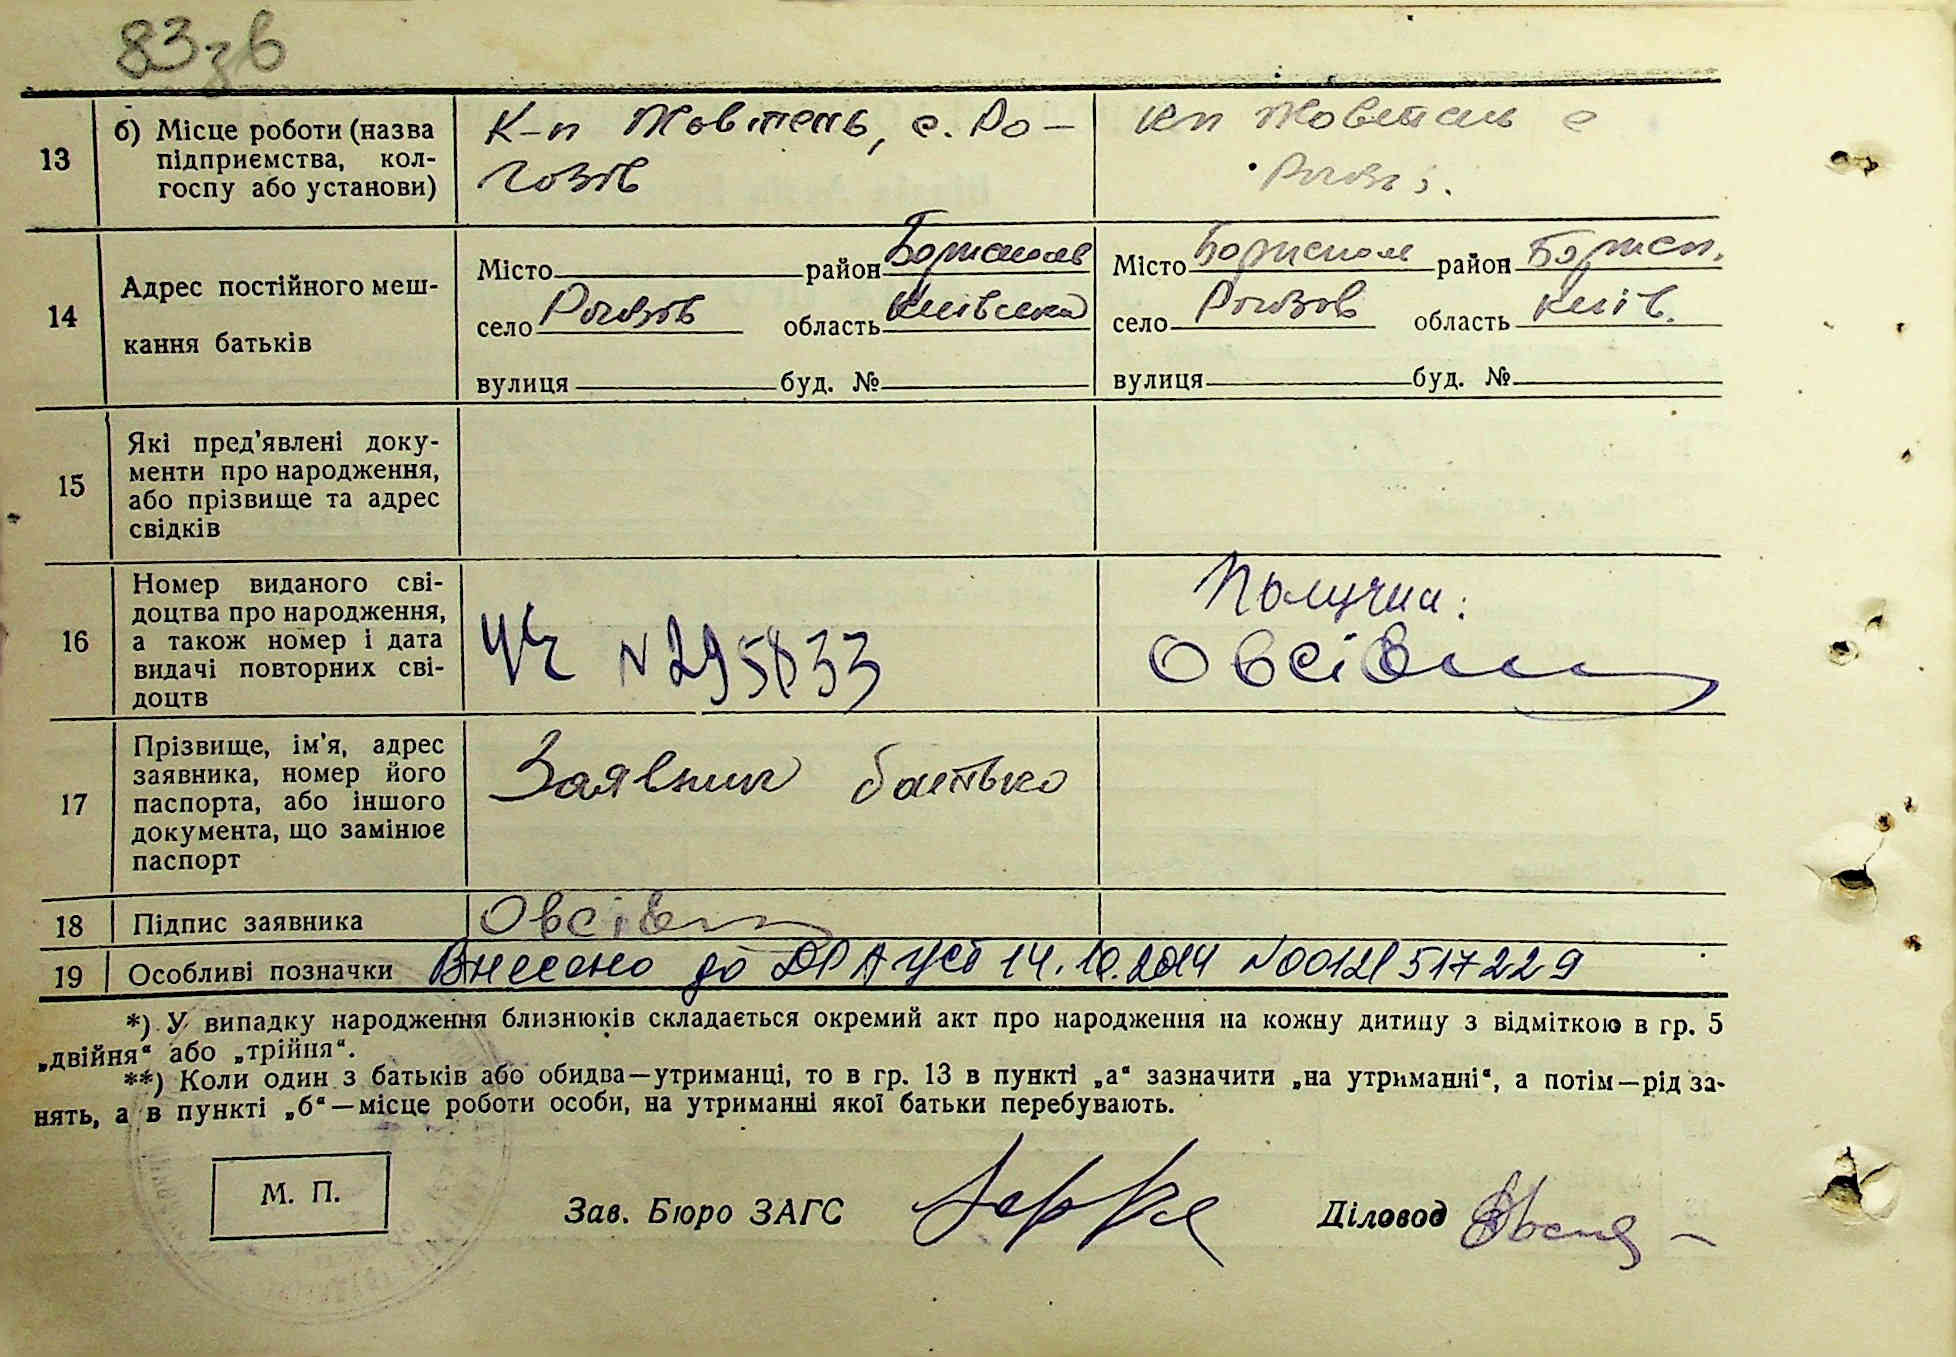 83зв
13 б) Місце роботи (назва підприємства, колгоспу або установи)
К-п Жовтень, с. Рогозів
кп Жовтень с Рогозів.
14 Адрес постійного мешкання батьків
Місто район Бориспольс
село Рогозів область Київська
вулиця буд. №
Місто Бориспол район Борисп.
село Рогозов область Київ.
вулиця буд. №
15 Які пред’явлені документи про народження, або прізвище та адрес свідків
16 Номер виданого свідоцтва про народження, а також номер і дата видачі повторних свідоцтв
N295833
Получил:
Овсі
17 Прізвище, ім’я, адрес заявника, номер його паспорта, або іншого документа, що замінює паспорт
Заявник батько
18 Підпис заявника
Овсі
19 Особливі позначки Внесено до ДРАЦСГ 14.10.2014 N00121517229
*) У випадку народження близнюків складається окремий акт про народження на кожну дитину з відміткою в гр. 5
„двійня“ або „трійня“.
**) Коли один з батьків або обидва—утриманці, то в гр. 13 в пункті „а“ зазначити „на утриманні“, а потім—рід за-
нять, а в пункті „б“—місце роботи особи, на утриманні якої батьки перебувають.
М. П.
Зав. Бюро ЗАГС
Діловод